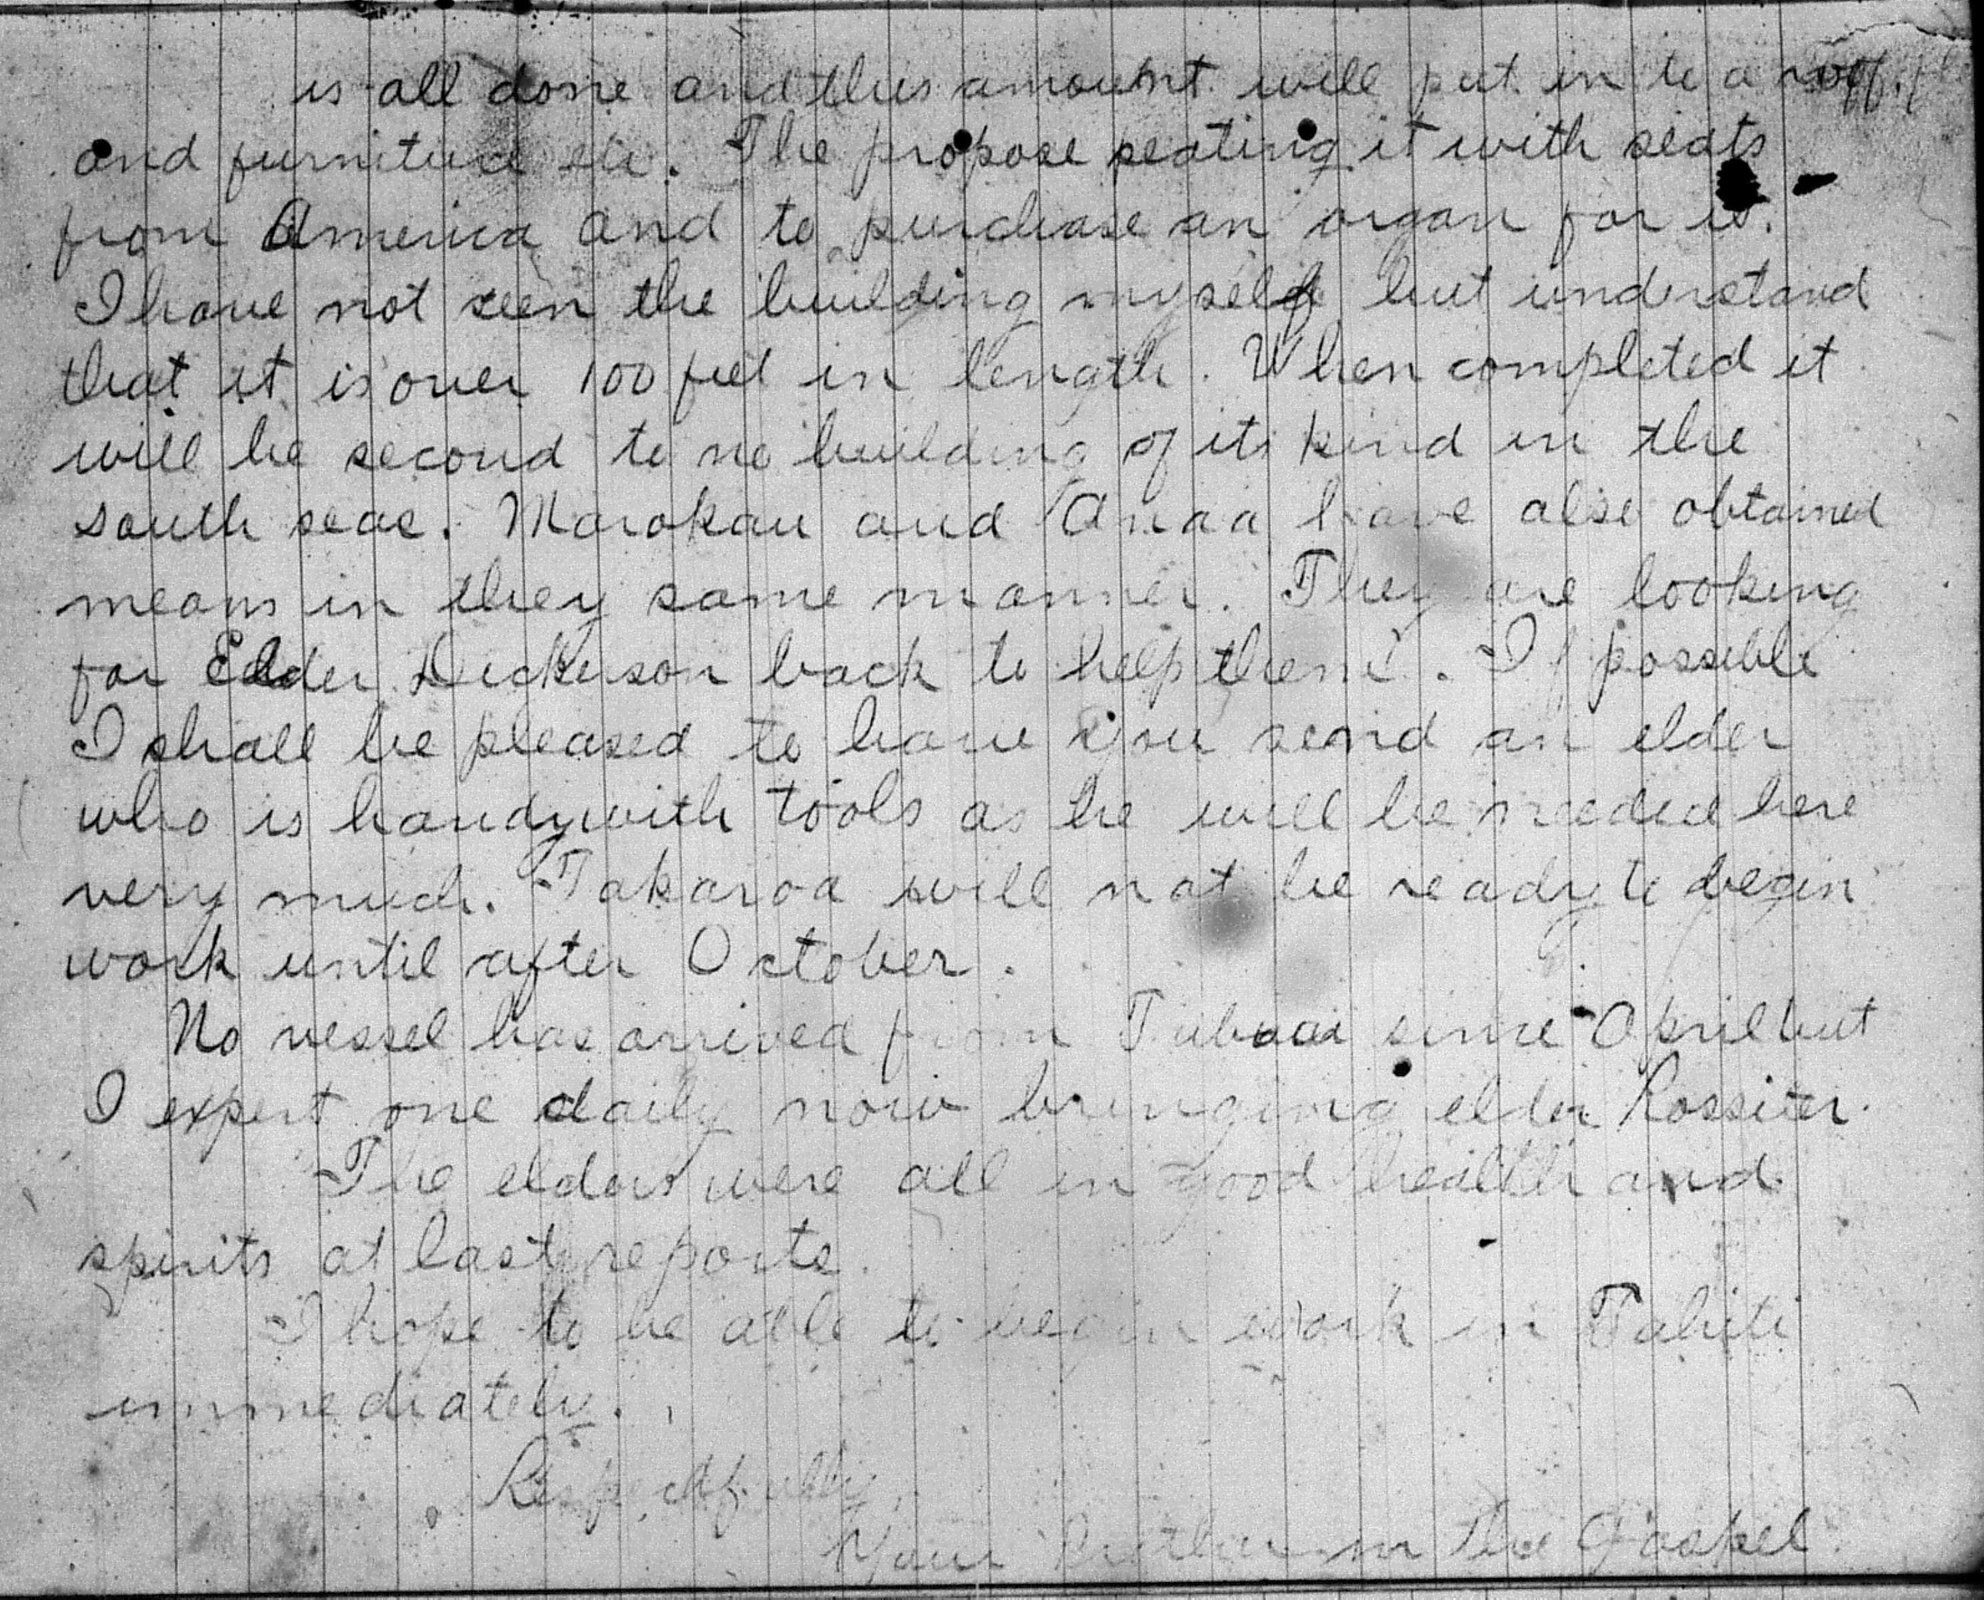 is all done and this amount will put in to a roof,
and furniture etc. The propose seating it with seats
from America and to purchase an organ for it.
I have not seen the building myself but understand
that it is over 100 feet in length. When completed it
will be second to no building of its kind in the
south seas. Marokau and Anaa have also obtained
means in they same manner. They are looking
for Elder Dickerson back to help them. If possible
I shall be pleased to have you send an elder
who is handy with tools as he will be needed here
very much. Takaroa will not be ready to begin
work until after October.
No vessel has arrived from Tubuai since April but
I expect one daily now bringing elder Rossiter.
The elders were all in good health and
spirits at last reports.
I hope to be able to begin work in Tahiti
immediately.
Respectfully
Your brother in the Gospel